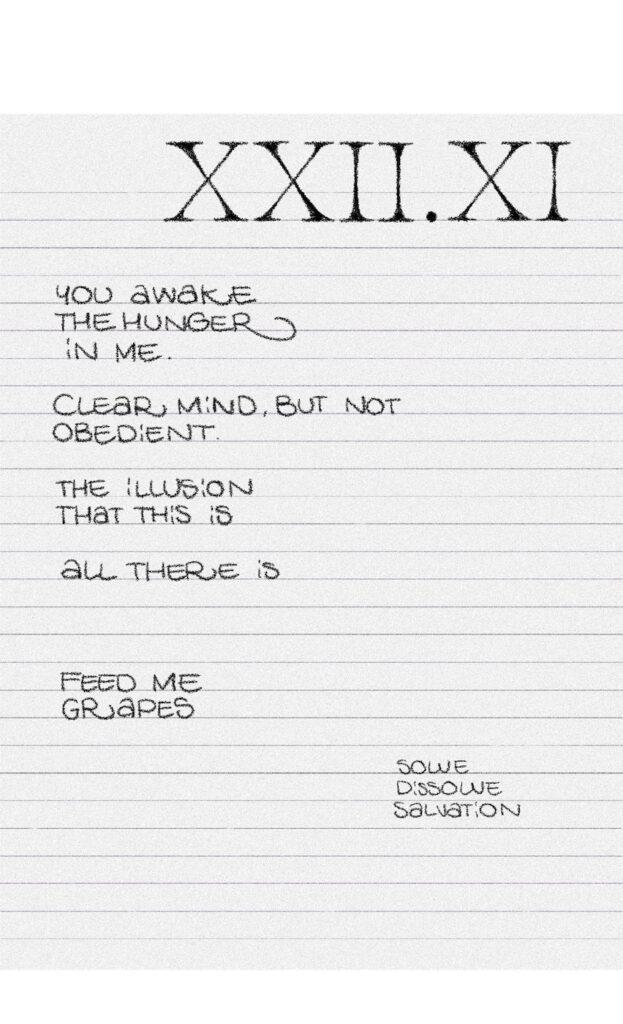 XXII.XI
YOU AWAKE
THE HUNGER
IN ME.
CLEAR MIND, BUT NOT
OBEDIENT.
THE ILLUSION
THAT THIS IS
ALL THERE IS
FEED ME
GRAPES
SOLVE
DISSOLVE
SALVATION